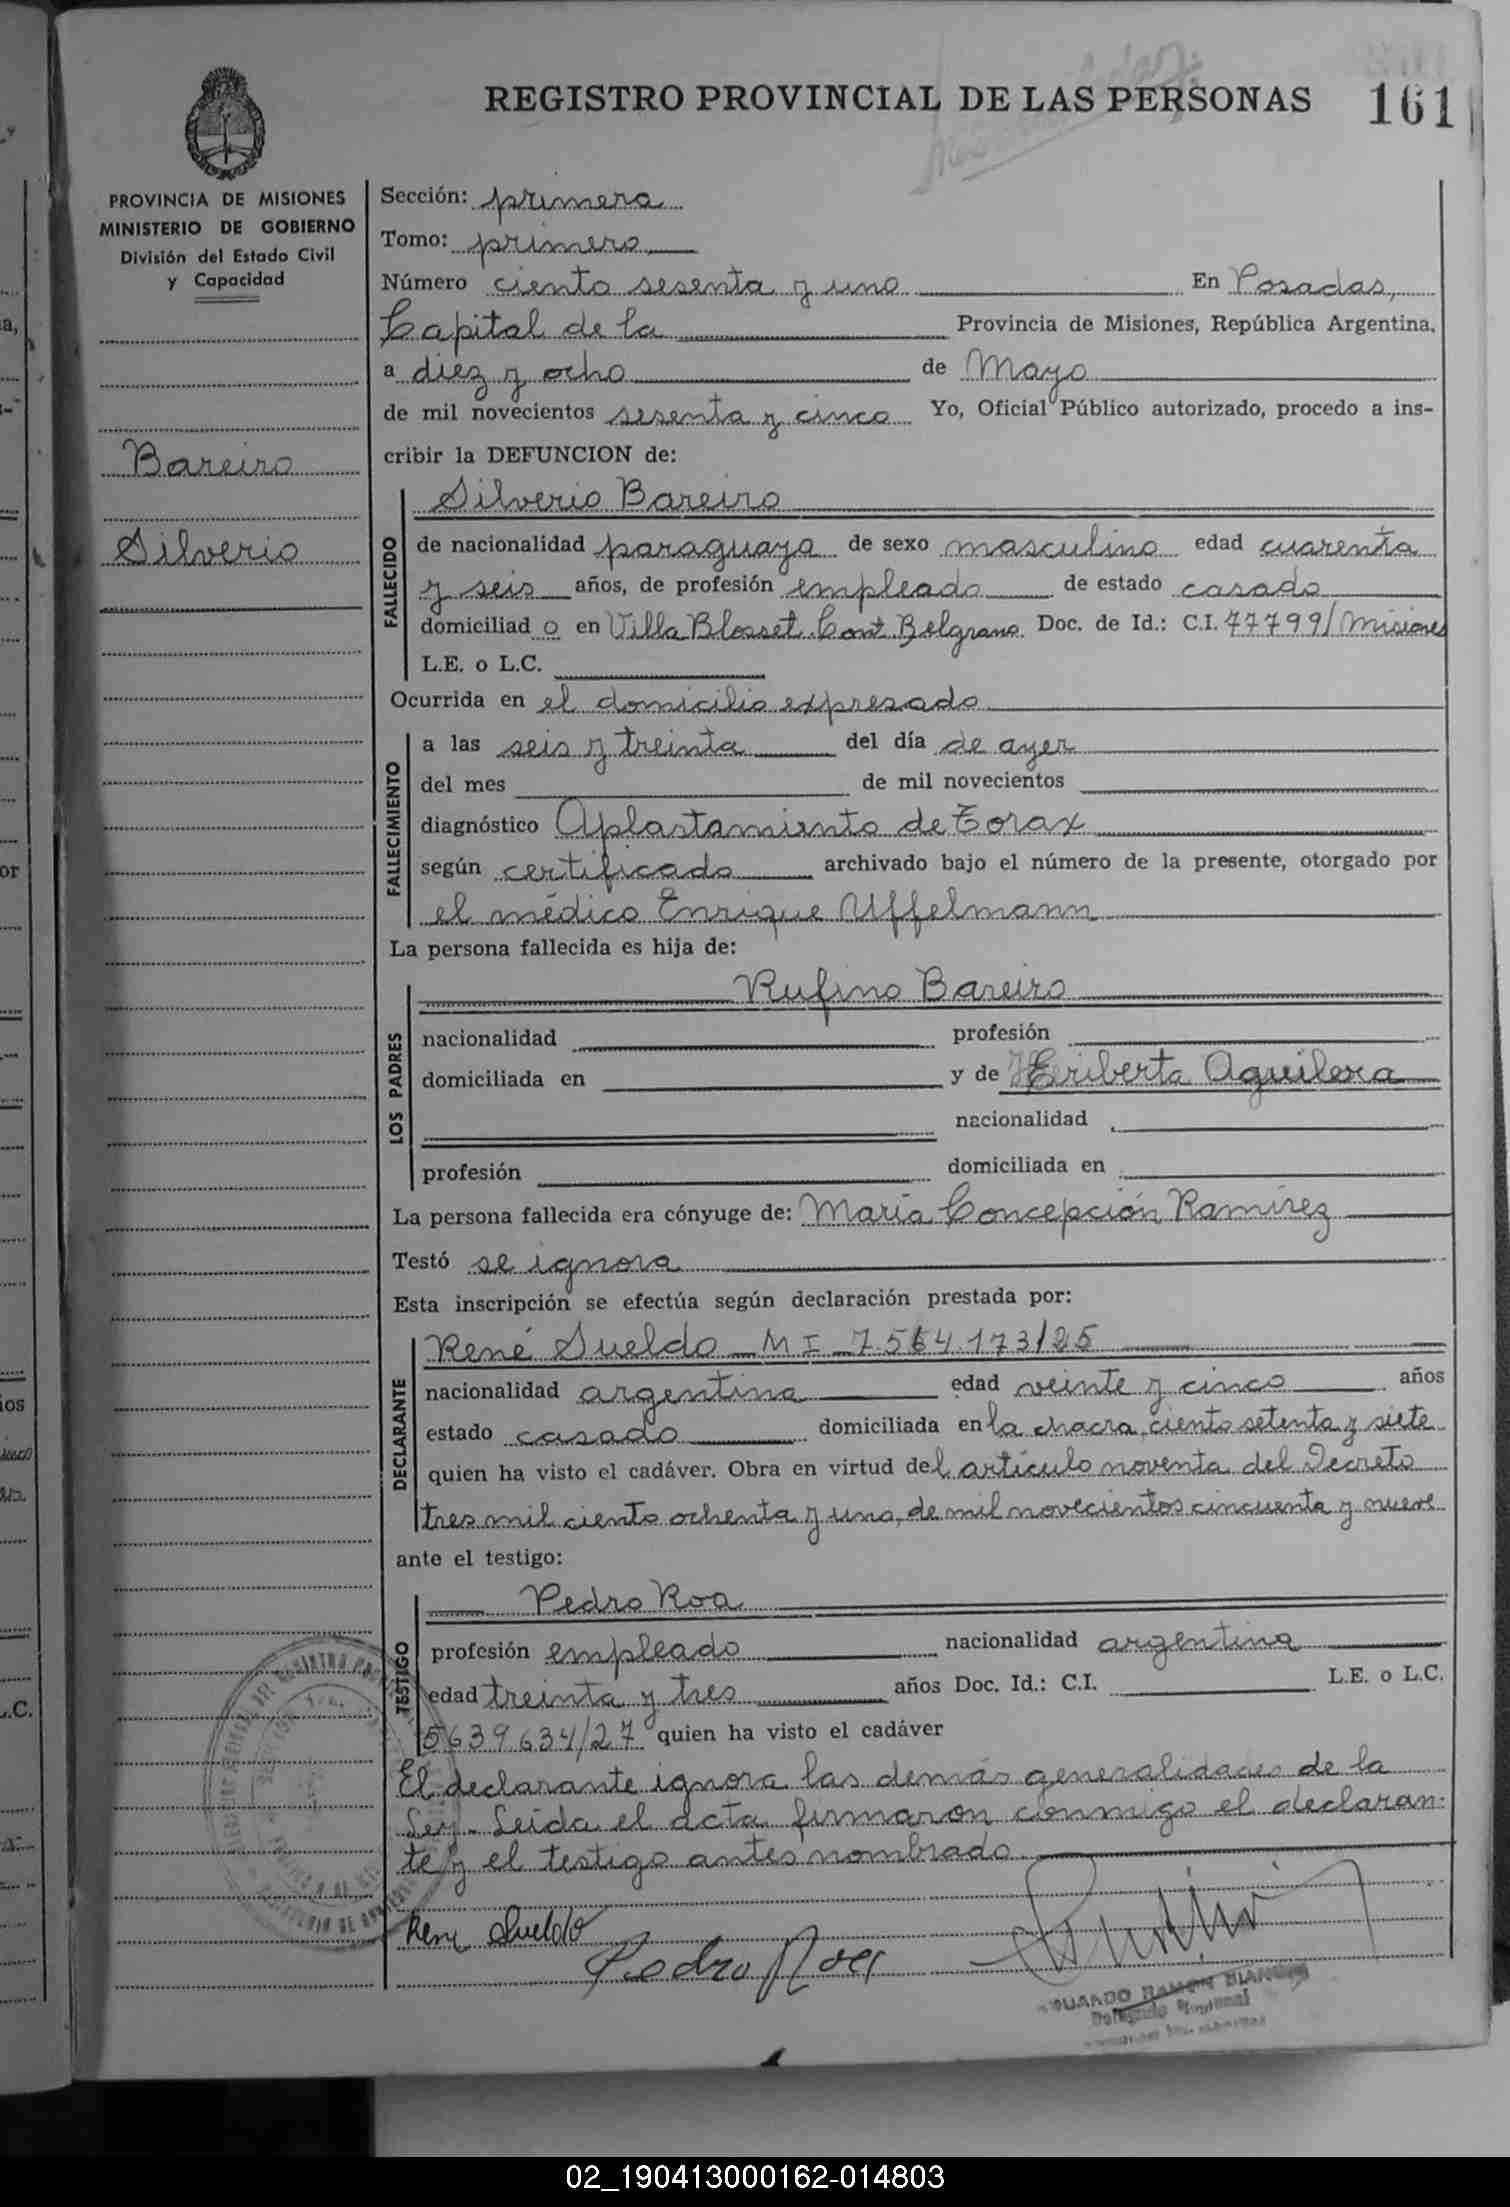 REGISTRO PROVINCIAL DE LAS PERSONAS 161
PROVINCIA DE MISIONES
MINISTERIO DE GOBIERNO
División del Estado Civil
y Capacidad
Bareiro
Silverio
Sección: primera
Tomo: primero
Número ciento sesenta y uno En Posadas,
Capital de la Provincia de Misiones, República Argentina,
a diez y ocho de Mayo
de mil novecientos sesenta y cinco Yo, Oficial Público autorizado, procedo a ins-
cribir la DEFUNCION de:
FALLECIDO
Silverio Bareiro
de nacionalidad paraguaya de sexo masculino edad cuarenta
y seis años, de profesión empleado de estado casado
domiciliad o en Villa Blosset. Cont Belgrano. Doc. de Id.: C.I. 77799/Misiones
L.E. o L.C.
Ocurrida en el domicilio expresado
FALLECIMIENTO
a las seis y treinta del día de ayer
del mes de mil novecientos
diagnóstico Aplastamiento de Torax
según certificado archivado bajo el número de la presente, otorgado por
el médico Enrique Uffelmann
La persona fallecida es hija de:
LOS PADRES
Rufino Bareiro
nacionalidad profesión
domiciliada en y de Eriberta Aguilera
nacionalidad
profesión domiciliada en
La persona fallecida era cónyuge de: María Concepción Ramírez
Testó se ignora
Esta inscripción se efectúa según declaración prestada por:
DECLARANTE
René Sueldo M I 7.564.173/25
nacionalidad argentina edad veinte y cinco años
estado casado domiciliada en la chacra ciento setenta y siete
quien ha visto el cadáver. Obra en virtud del artículo noventa del Decreto
tres mil ciento ochenta y uno, de mil novecientos cincuenta y nueve
ante el testigo:
TESTIGO
Pedro Roa
profesión empleado nacionalidad argentina
edad treinta y tres años Doc. Id.: C.I. L.E. o L.C.
5639634/27 quien ha visto el cadáver
El declarante ignora las demás generalidades de la
Ley. Leida el acta firmaron conmigo el declaran-
te y el testigo antes nombrado.
René Sueldo
Pedro Roa
RAMON
Delegado
02_190413000162-014803